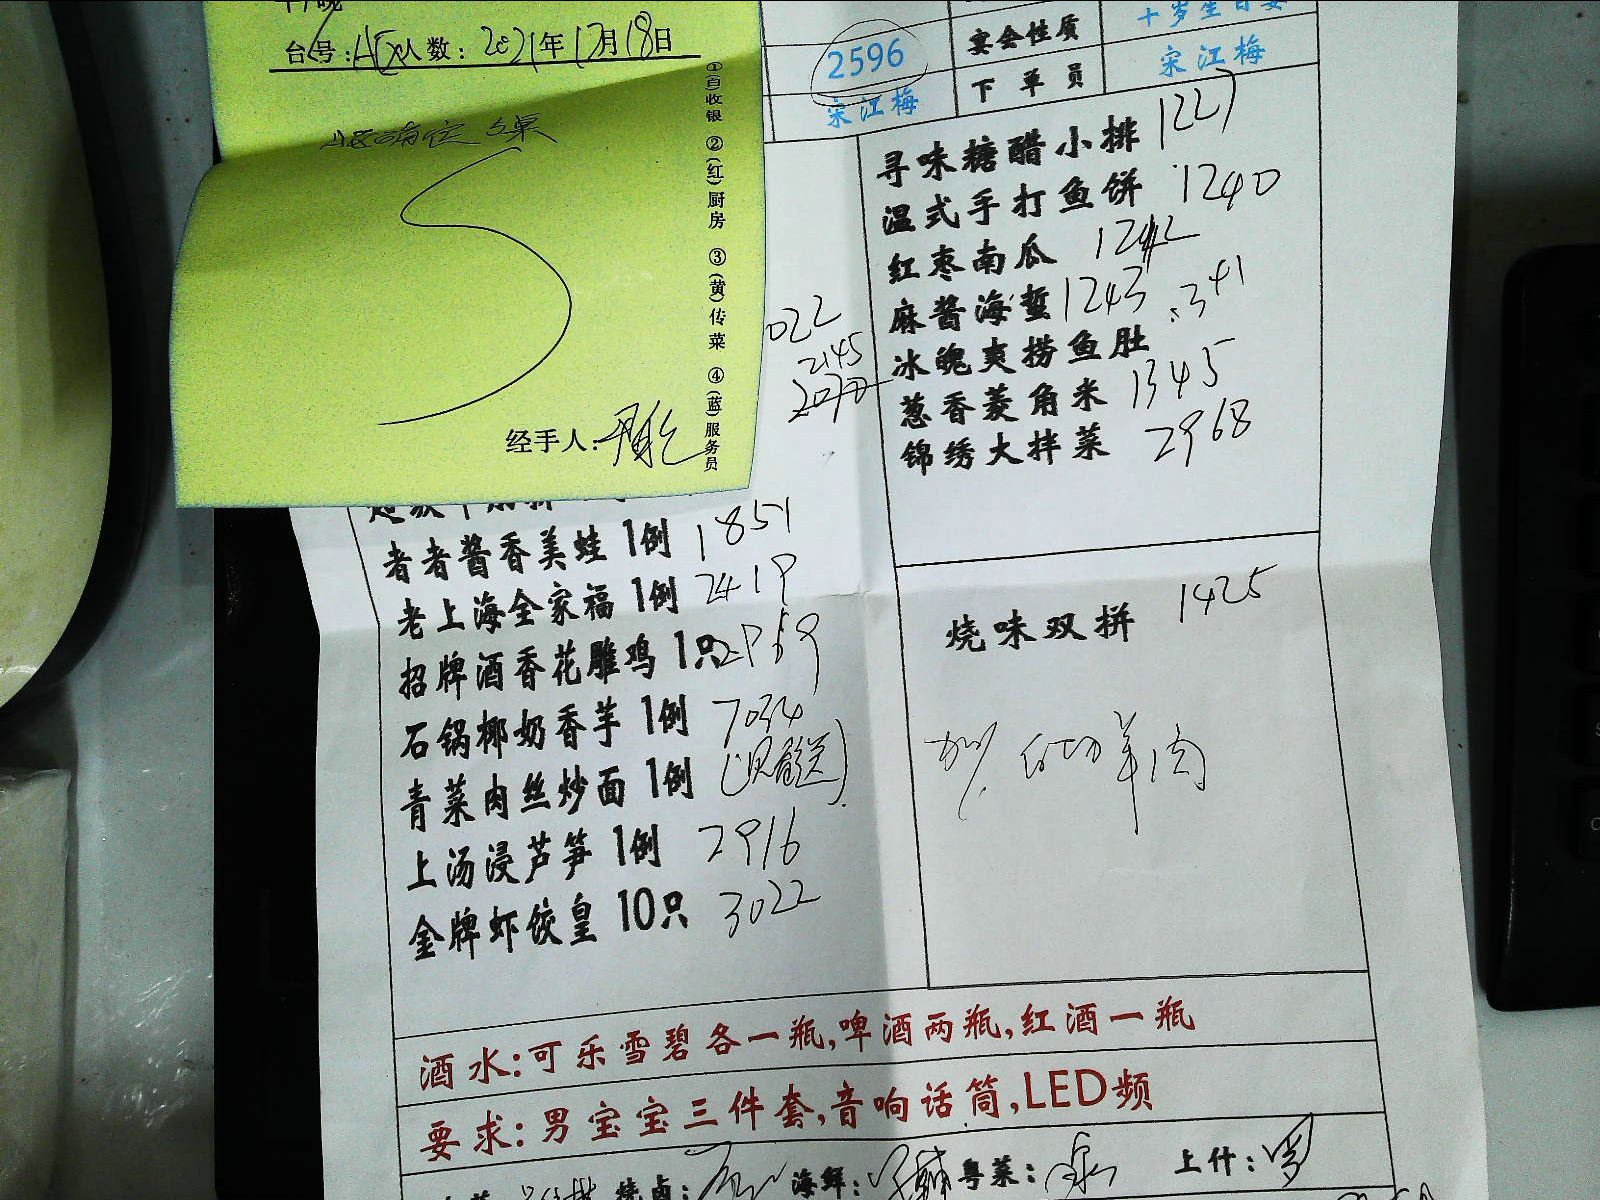 台号: 人数: 2021年12月18日
①(白)收银 ②(红)厨房 ③(黄)传菜 ④(蓝)服务员
经手人:
2596
宴会性质
十岁生日宴
宋江梅
下单员
宋江梅
寻味糖醋小排 1227
温式手打鱼饼 1240
红枣南瓜 1242
麻酱海蜇 1243
冰魄爽捞鱼肚 1341
葱香菱角米 1345
锦绣大拌菜 2968
022
2145
者者酱香美蛙 1例 1851
老上海全家福 1例 2419
招牌酒香花雕鸡 1只 2959
石锅椰奶香芋 1例 7034
青菜肉丝炒面 1例
上汤浸芦笋 1例 2916
金牌虾饺皇 10只 3022
烧味双拼 1425
加 白切羊肉
酒水:可乐雪碧各一瓶,啤酒两瓶,红酒一瓶
要求:男宝宝三件套,音响话筒,LED频
烧卤: 海鲜: 粤菜: 上什: